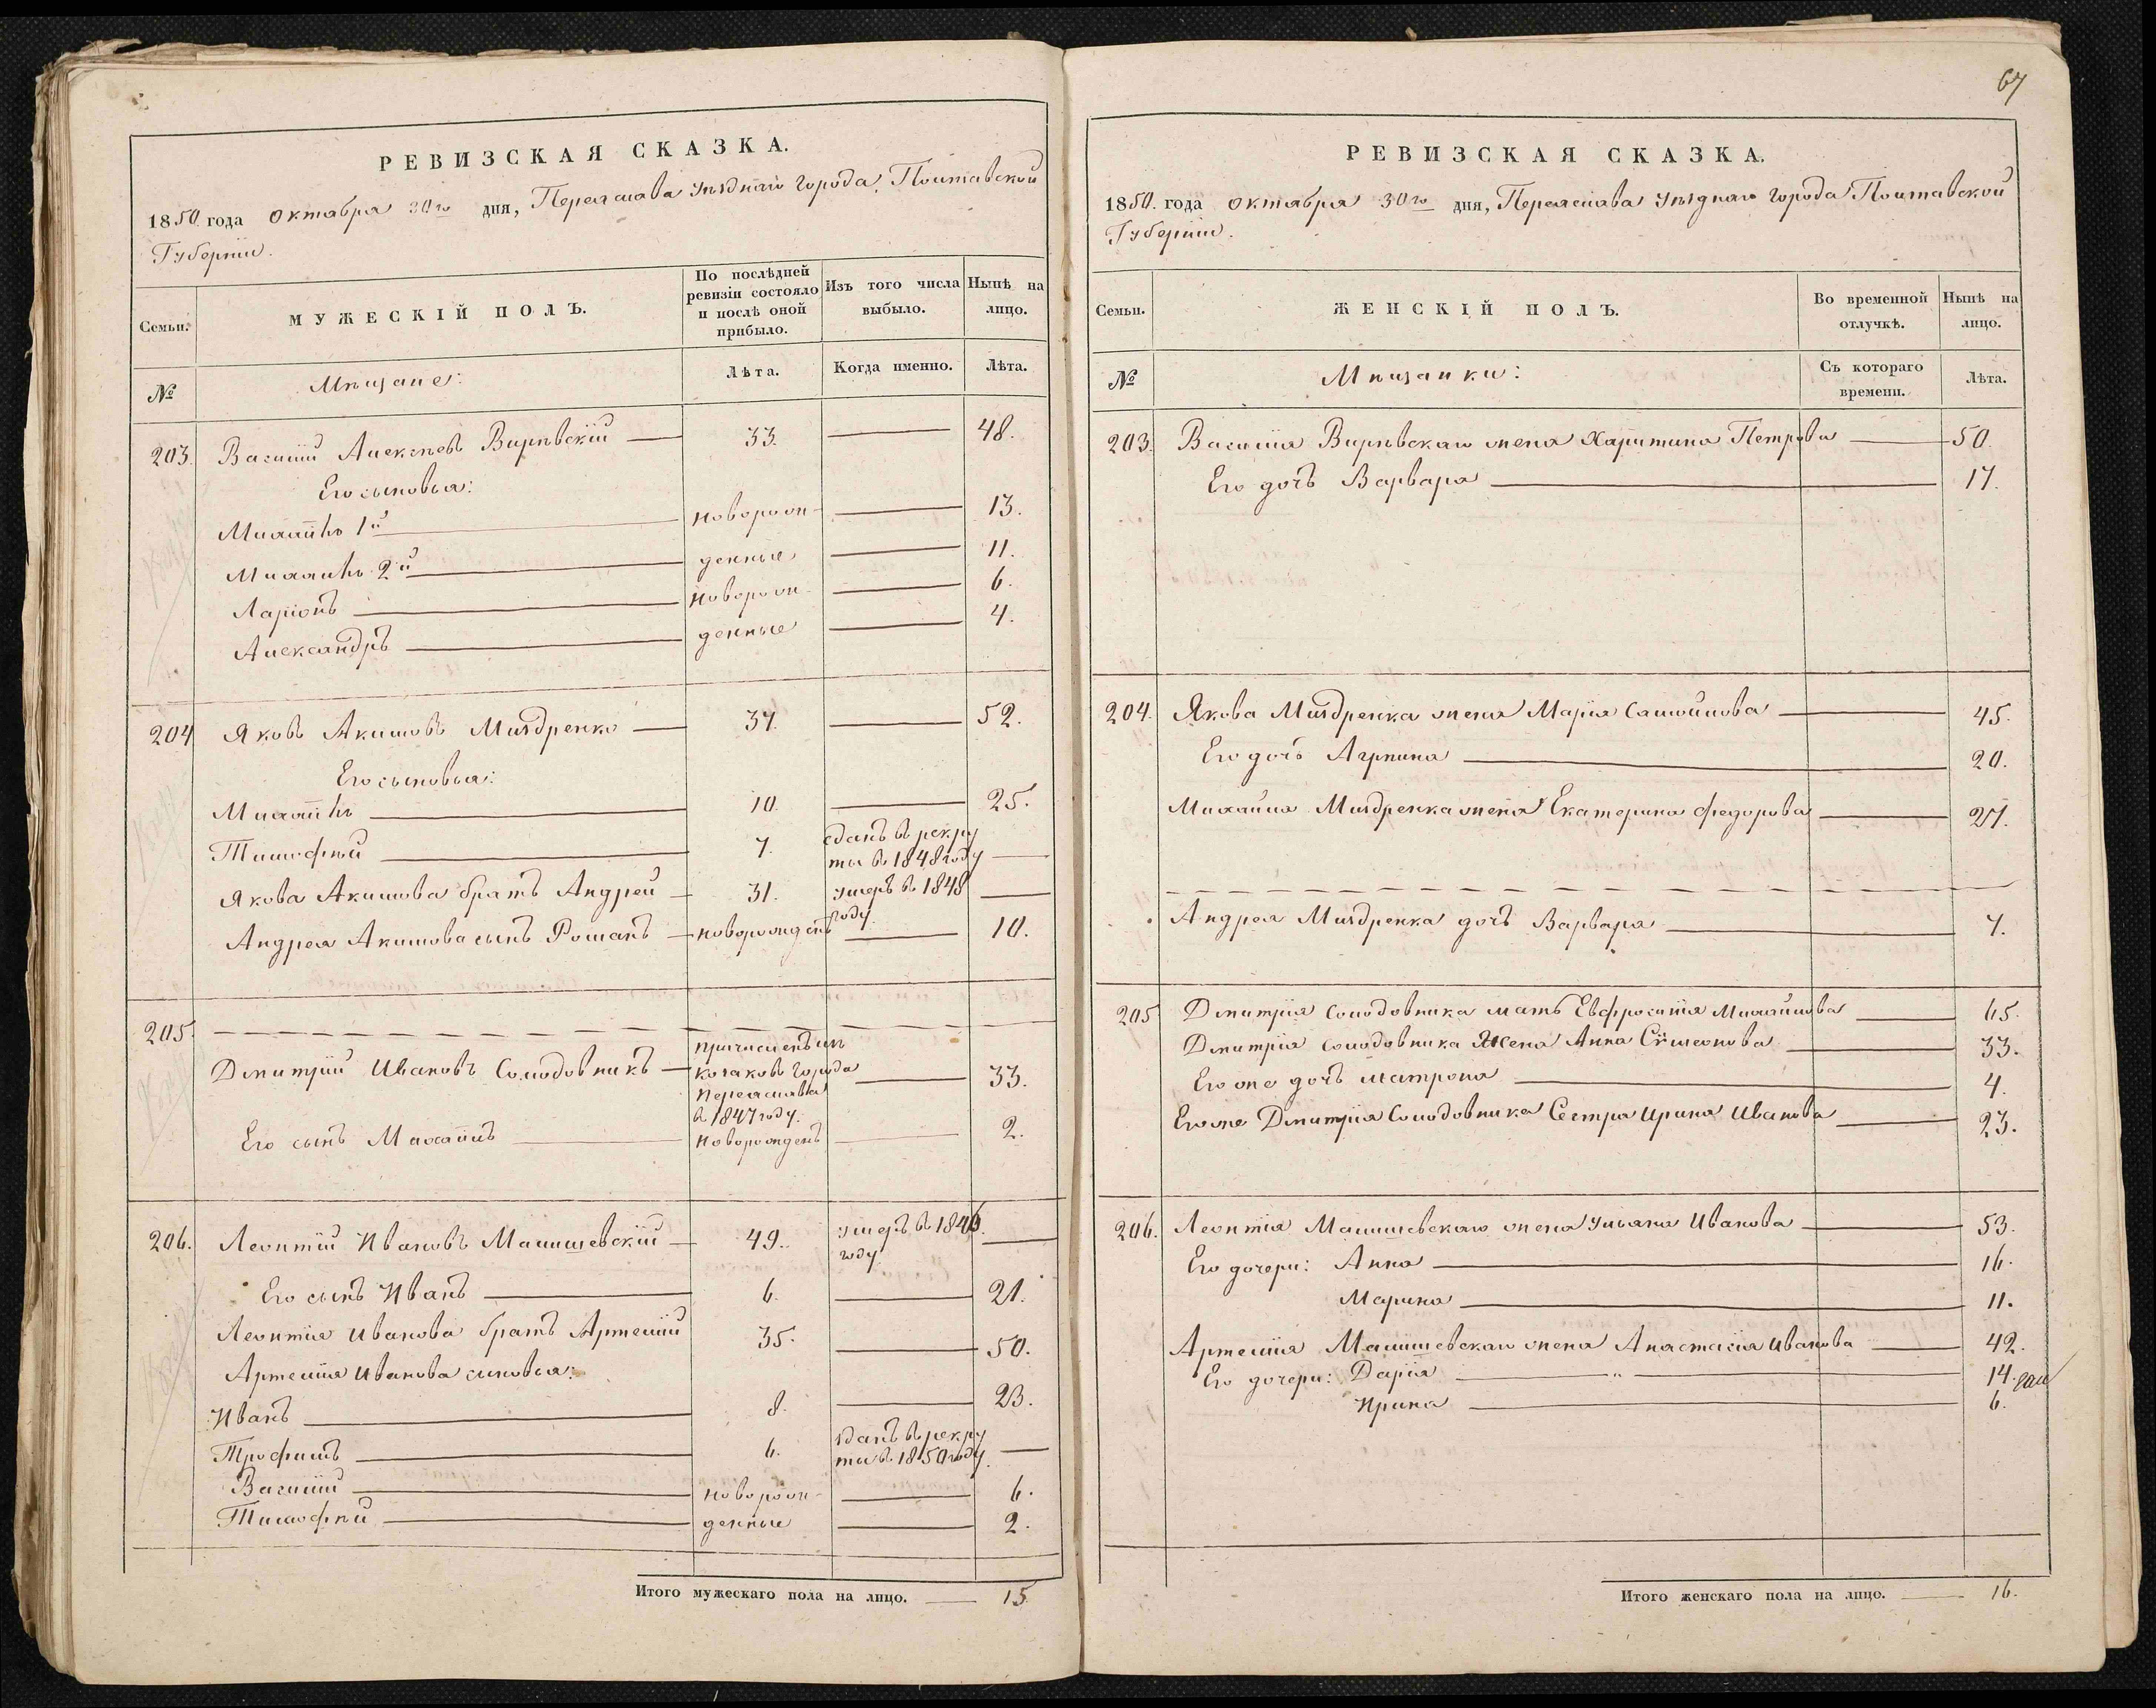 РЕВИЗСКАЯ СКАЗКА.
1850 года Октября 30го дня, Переяслава Уѣзднаго города, Полтавской
Губерніи.
Семьи.
МУЖЕСКІЙ ПОЛЪ.
По послѣдней ревизіи состояло и послѣ оной прибыло.
Изъ того числа выбыло.
Нынѣ на лицо.
№
Мѣщане:
Лѣта.
Когда именно.
Лѣта.
203. Василій Алексѣевъ Вирѣвскій 33. 48.
Его сыновья:
Михаилъ 1й новорож- 13.
Михаилъ 2й денные 11.
Ларіонъ новорож- 6.
Александръ денные 4.
204 Яковъ Акимовъ Миздренко 37. 52.
Его сыновья:
Михаилъ 10. 25.
Тимофѣй 7. сданъ въ рекру
ты въ 1848 году
Якова Акимова братъ Андрей 31. умеръ въ 1848
году.
Андрея Акимова сынъ Романъ новорожденъ 10.
205.
Дмитрій Ивановъ Солодовникъ причисленъ изъ
козаковъ города 33.
Переяслава
въ 1847 году.
Его сынъ Михаилъ новорожденъ 2.
206. Леонтій Ивановъ Малишевскій 49. умеръ въ 1846.
году.
Его сынъ Иванъ 6. 21.
Леонтія Иванова братъ Артемій 35. 50.
Артемія Иванова сыновья:
Иванъ 8. 23.
Трофимъ 6. сданъ въ рекру
ты въ 1850 году.
Василій новорож- 6.
Тимофѣй денные 2.
Итого мужескаго пола на лицо. 15.
67
РЕВИЗСКАЯ СКАЗКА.
1850. года Октября 30го дня, Переяслава Уѣзднаго города Полтавской
Губерніи.
Семьи.
ЖЕНСКІЙ ПОЛЪ.
Во временной отлучкѣ.
Нынѣ на лицо.
№
Мѣщанки:
Съ котораго времени.
Лѣта.
203. Василія Вирѣвскаго жена Харитина Петрова 50.
Его дочь Варвара 17.
204. Якова Миздренка жена Марія Самойлова 45.
Его дочь Агрпина 20.
Михаила Миздренка жена Екатерина Федорова 27.
Андрея Миздренка дочь Варвара 7.
205 Дмитрія Солодовника мать Евфросинія Михайлова 65.
Дмитрія Солодовника Жена Анна Симеонова 33.
Его же дочь Матрона 4.
Его же Дмитрія Солодовника Сестра Ирина Иванова 23.
206. Леонтія Малишевскаго жена Ульяна Иванова 53.
Его дочери: Анна 16.
Марина 11.
Артемія Малишевскаго жена Анастасія Иванова 42.
Его дочери: Дарія " 14.
Ирина 6.
Итого женскаго пола на лицо. 16.